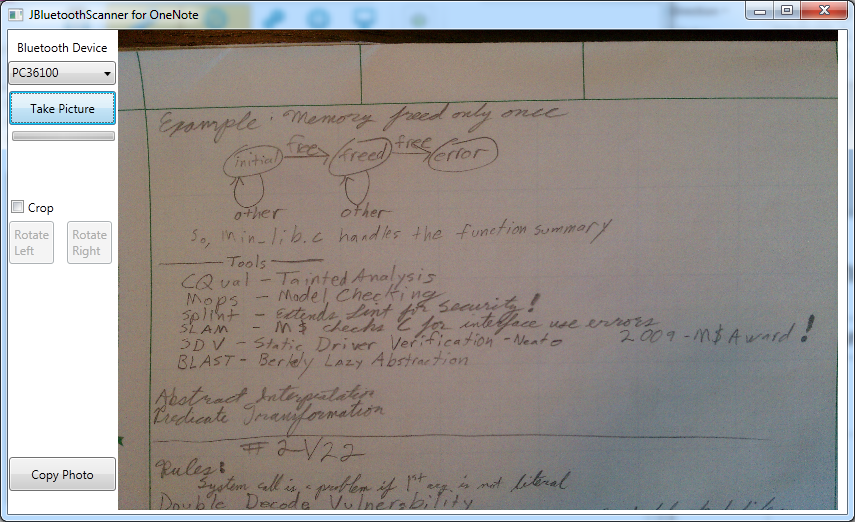 JBluetoothScanner for OneNote
Bluetooth Device
PC36100
Take Picture
Crop
Rotate Left
Rotate Right
Copy Photo
Example: Memory freed only once
initial free freed free error
other other
So, min_lib.c handles the function summary
Tools
CQual - Tainted Analysis
Mops - Model Checking
Splint - Extends Lint for Security!
SLAM - M$ checks C for interface use errors
SDV - Static Driver Verification - Neato 2009 - M$ Award!
BLAST - Berkly Lazy Abstraction
Abstract Interpretation
Predicate Transformation
# 2-V22
Rules:
System call is a problem if 1st arg is not literal
Double Decode Vulnerability